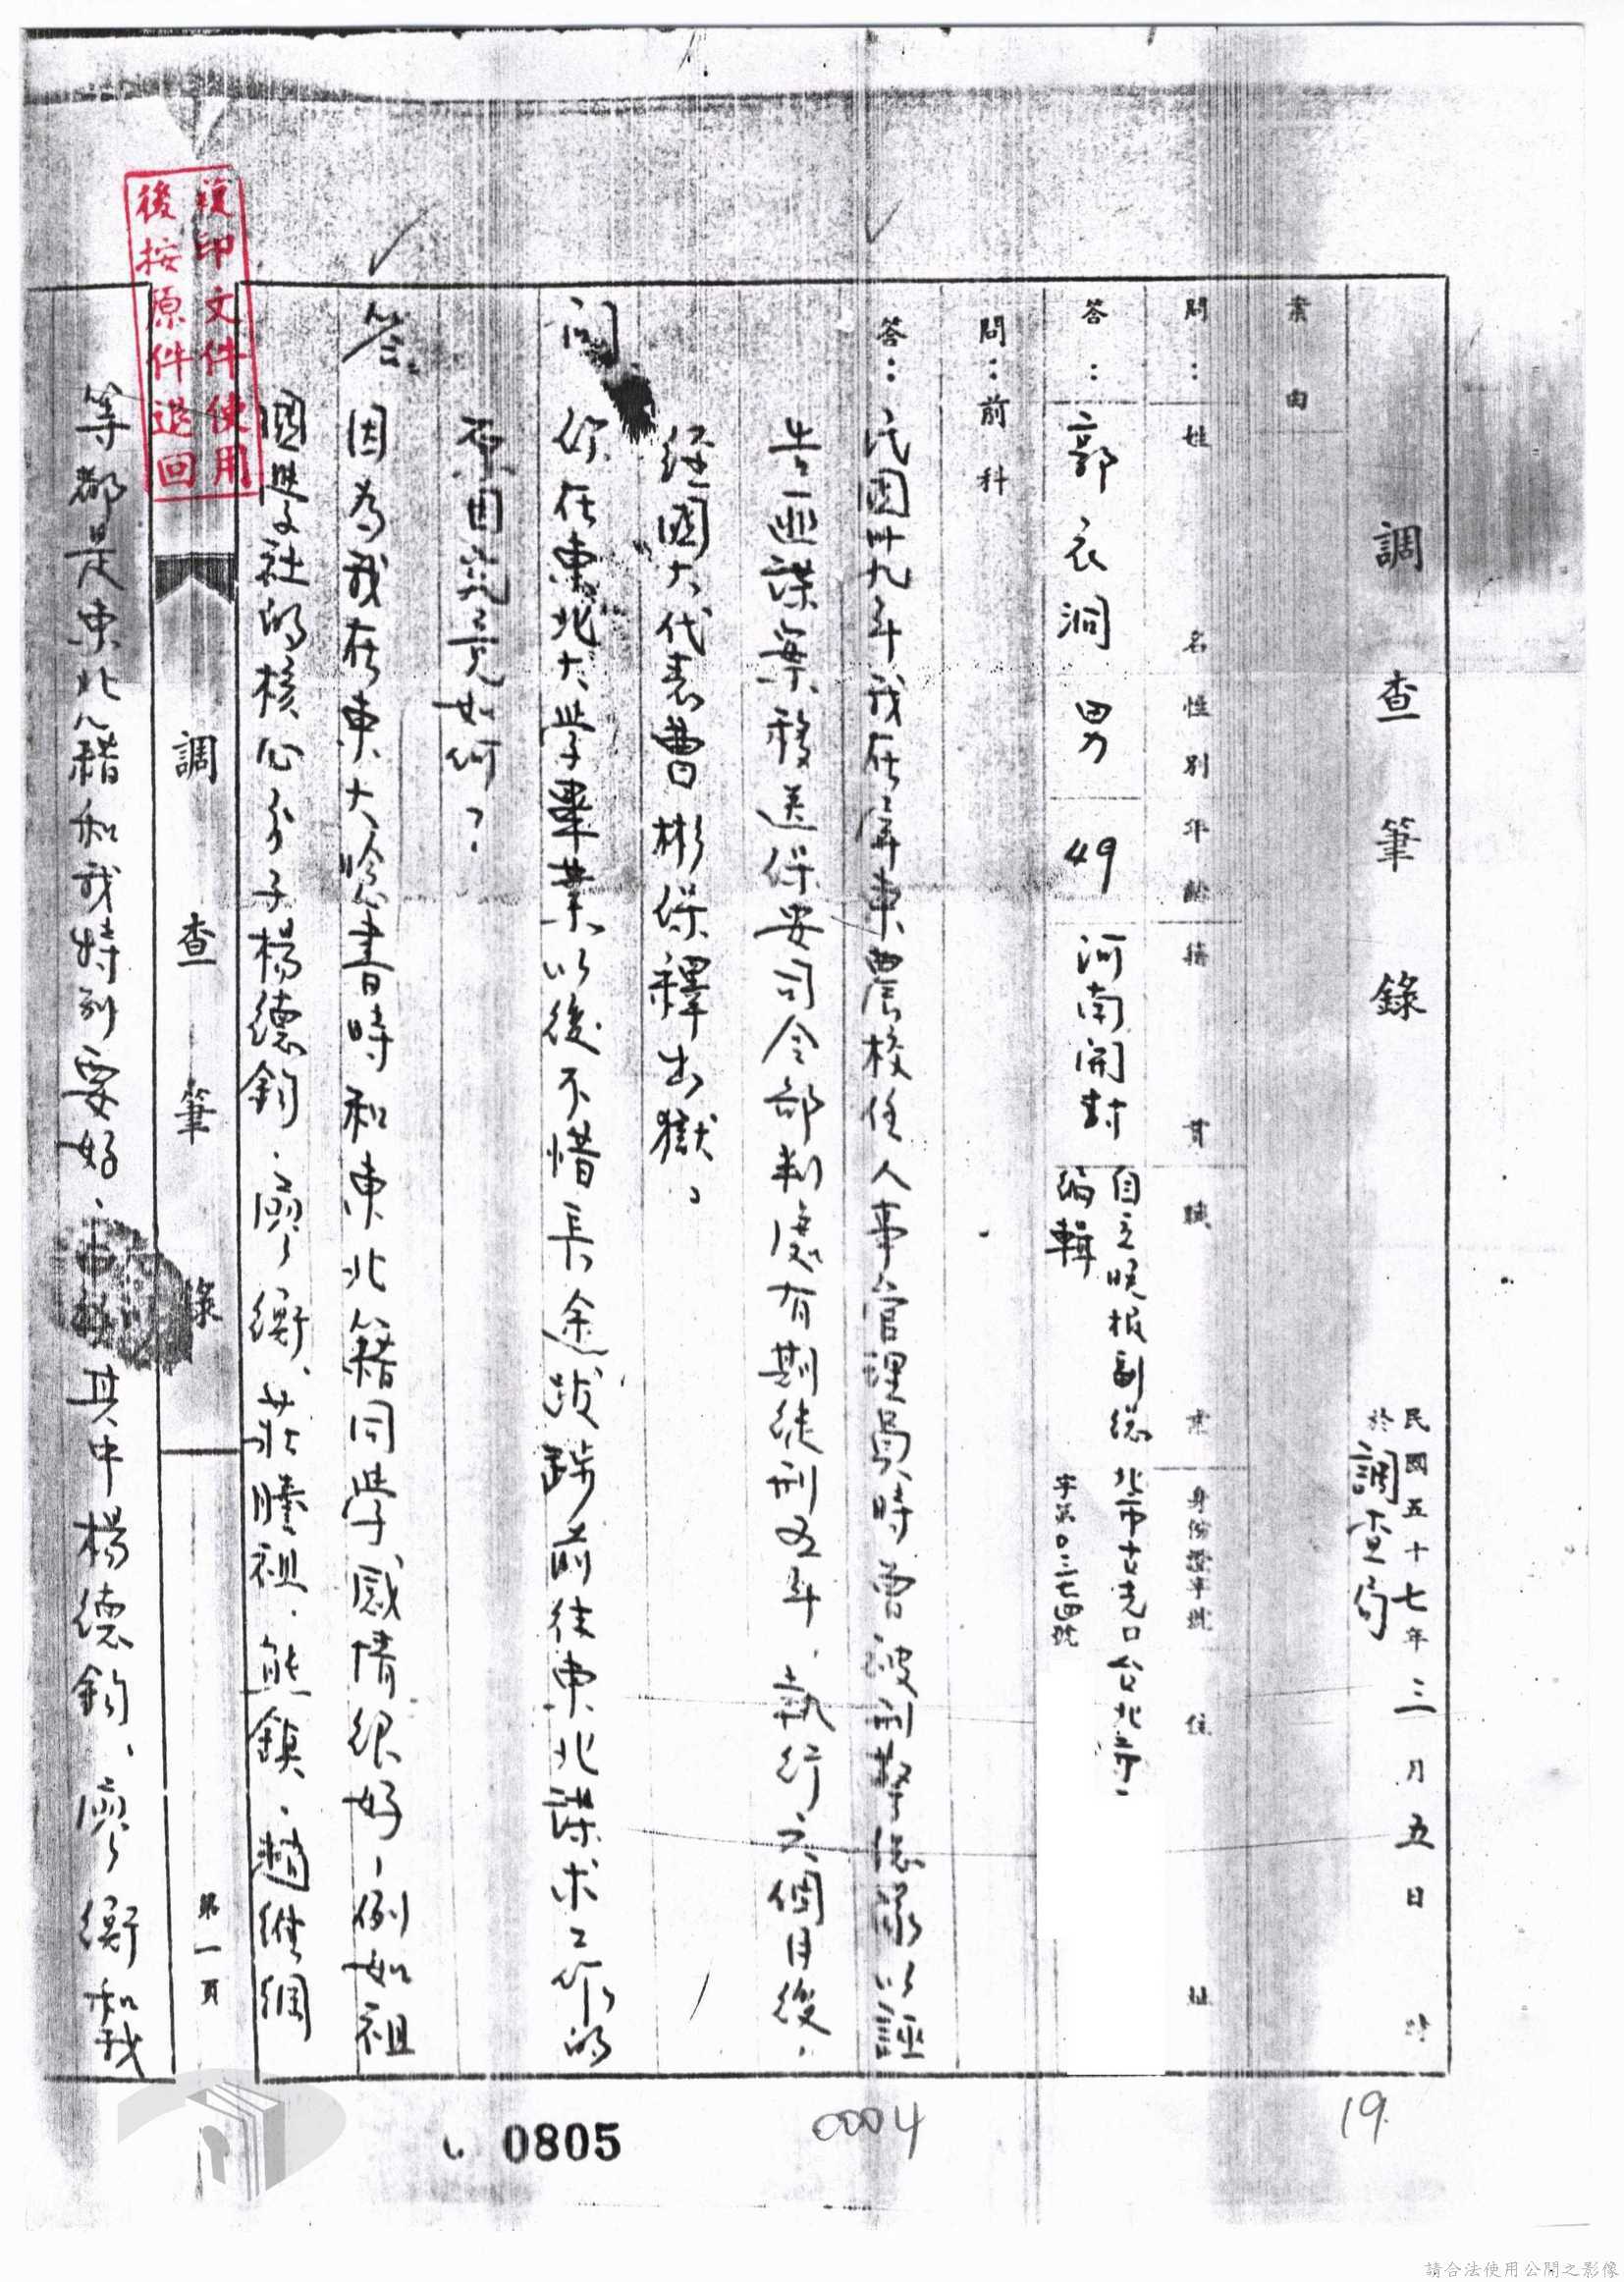 調查筆錄
民國五十七年三月五日 時
於調查局
案由
問：姓名 性別 年齡 籍貫 職業 身份證字號 住址
答：郭衣洞 男 49 河南開封 自立晚報副總編輯 北市古光口台北市
字第0三七四號
問：前科
答：民國卅九年我在屏東農校任人事管理員時曾被刑警總隊以誣
告匪諜案移送保安司令部判處有期徒刑五年，執行六個月後，
經國大代表曹彬保釋出獄。
問 你在東北大學畢業以後不惜長途跋踄前往東北謀求工作的
原因究竟如何？
答 因為我在東大唸書時和東北籍同學感情很好，例如祖
國學社的核心分子楊德鈞、廖衡、莊贃祖、熊鎮、趙継綱
調查筆錄
第一頁
等都是東北籍和我特別要好，其中楊德鈞、廖衡和我
複印文件使用
後按原件退回
0805
0004
19
請合法使用公開之影像